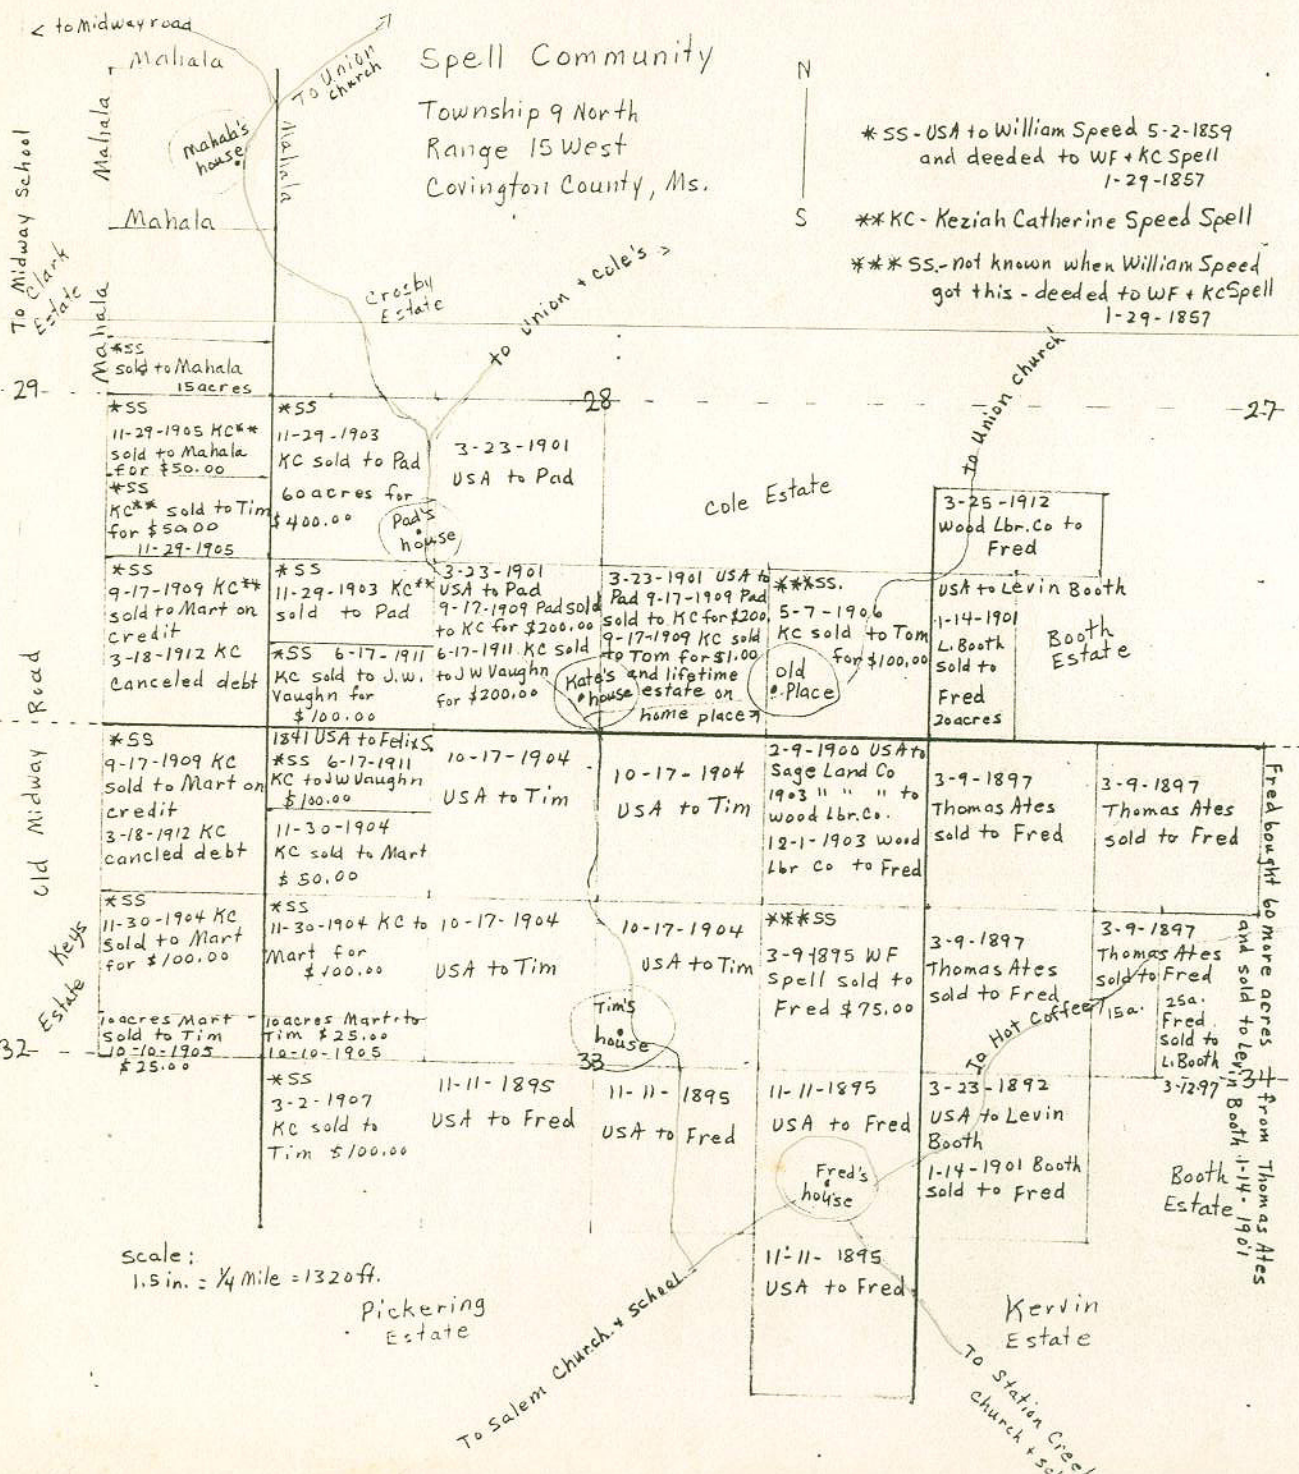 < to Midway road
Mahala
To Union
church
Spell Community
Township 9 North
Range 15 West
Covington County, Ms.
N
S
*SS - USA to William Speed 5-2-1859
and deeded to WF + KC Spell
1-29-1857
**KC - Keziah Catherine Speed Spell
***SS.- not known when William Speed
got this - deeded to WF + KC Spell
1-29-1857
Mahala
Mahala
Mahala
Mahala
Mahala's
house
To Midway School
Clark
Estate
Crosby
Estate
to Union + Cole's >
to Union church
29
28
27
*SS
sold to Mahala
15 acres
*SS
11-29-1905 KC**
sold to Mahala
for $50.00
*SS
KC** sold to Tim
for $50.00
11-29-1905
*SS
11-29-1903
KC sold to Pad
60 acres for
$400.00
Pad's
house
3-23-1901
USA to Pad
Cole Estate
3-25-1912
Wood Lbr. Co to
Fred
*SS
9-17-1909 KC**
sold to Mart on
credit
3-18-1912 KC
canceled debt
*SS
11-29-1903 KC**
sold to Pad
*SS 6-17-1911
KC sold to J.W.
Vaughn for
$100.00
3-23-1901
USA to Pad
9-17-1909 Pad sold
to KC for $200.00
6-17-1911 KC sold
to J W Vaughn
for $200.00
3-23-1901 USA to
Pad 9-17-1909 Pad
sold to KC for $200.
9-17-1909 KC sold
to Tom for $1.00
and lifetime
estate on
home place
Kate's
house
***SS.
5-7-1906
KC sold to Tom
for $100.00
old
Place
USA to Levin Booth
1-14-1901
L. Booth
sold to
Fred
20 acres
Booth
Estate
Old Midway Road
*SS
9-17-1909 KC
sold to Mart on
credit
3-18-1912 KC
cancled debt
1841 USA to Felix S.
*SS 6-17-1911
KC to JW Vaughn
$100.00
11-30-1904
KC sold to Mart
$50.00
10-17-1904
USA to Tim
10-17-1904
USA to Tim
2-9-1900 USA to
Sage Land Co
1903 " " " to
Wood Lbr. Co.
12-1-1903 Wood
Lbr Co to Fred
3-9-1897
Thomas Ates
sold to Fred
3-9-1897
Thomas Ates
sold to Fred
Fred bought 60 more acres from Thomas Ates
and sold to Levin Booth 1-14-1901
Keys
Estate
*SS
11-30-1904 KC
Sold to Mart
for $100.00
10 acres Mart
sold to Tim
10-10-1905
$25.00
*SS
11-30-1904 KC to
Mart for
$100.00
10 acres Mart to
Tim $25.00
10-10-1905
10-17-1904
USA to Tim
10-17-1904
USA to Tim
Tim's
house
***SS
3-9-1895 WF
Spell sold to
Fred $75.00
3-9-1897
Thomas Ates
sold to Fred
To Hot Coffee
3-9-1897
Thomas Ates
sold to Fred
15a.
25a.
Fred
sold to
L. Booth
3-12-97
32
33
34
*SS
3-2-1907
KC sold to
Tim $100.00
11-11-1895
USA to Fred
11-11-1895
USA to Fred
11-11-1895
USA to Fred
Fred's
house
3-23-1892
USA to Levin
Booth
1-14-1901 Booth
sold to Fred
Booth
Estate
11-11-1895
USA to Fred
scale:
1.5 in. = 1/4 Mile = 1320 ft.
Pickering
Estate
To Salem Church + school
Kervin
Estate
To Station Creek
church +